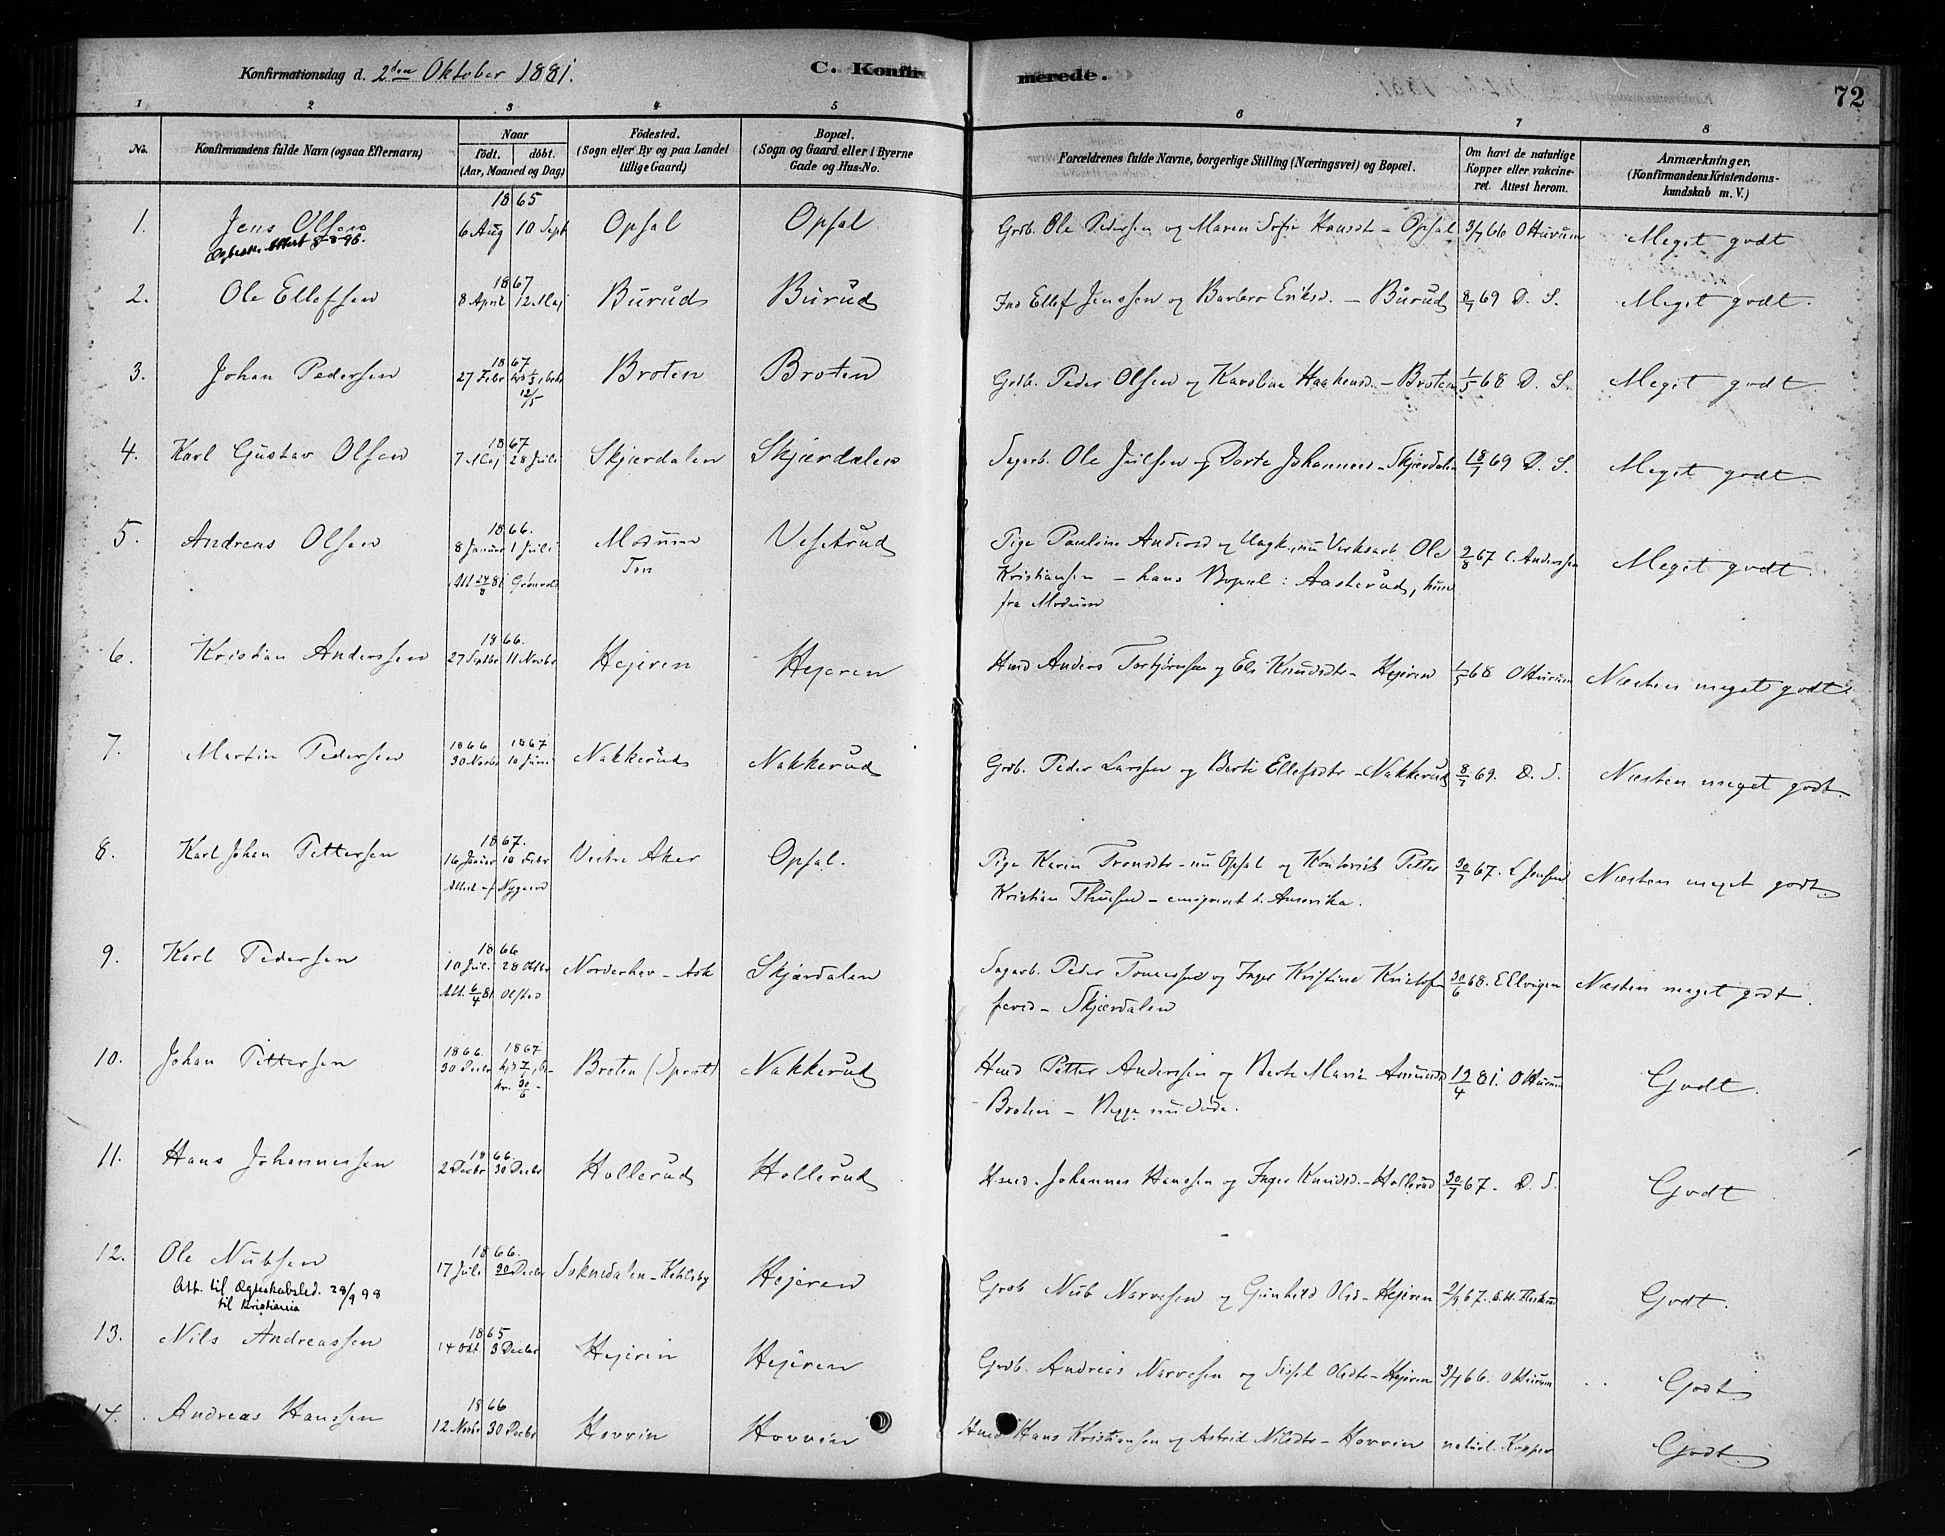 Konfirmationsdag d. 2den Oktober 1881.
C. Konfirmerede.
72
1 2 3 4 5 6 7 8
No.
Konfirmandens fulde Navn (ogsaa Efternavn)
Naar
födt. döbt.
(Aar, Maaned og Dag)
Födested.
(Sogn eller By og paa Landet
tillige Gaard)
Bopæl.
(Sogn og Gaard eller i Byerne
Gade og Hus-No.
Forældrenes fulde Navne, borgerlige Stilling (Næringsvei) og Bopæl.
Om havt de naturlige
Kopper eller vakcine-
ret. Attest herom.
Anmærkninger,
(Konfirmandens Kristendoms-
kundskab m. V.)
1865
1. Jens Olsen 6 Aug 10 Sept Opsal Opsal Grdb. Ole Pedersen og Maren Sofie Hansdtr - Opsal 3/7 66 O Hurum Meget godt
Attest 8-8-96.
1867
2. Ole Ellefsen 8 April 12 Maj Burud Burud Ind Ellef Jenssen og Barbro Eriksd. - Burud 8/7 69 D. S. Meget godt.
1867
3. Johan Pedersen 27 Febr 1/3, Broten Broten Grdb. Peder Olsen og Karoline Haakensd. - Broten 1/5 68 D. S. Meget godt.
12/5
1867
4. Karl Gustav Olsen 7 Maj 28 Juli Skjærdalen Skjærdalen Sagarb. Ole Juilsen og Dorte Johannesd - Skjærdalen 18/7 69 D. S. Meget godt.
1866.
5. Andreas Olsen 8 Januar 1 Juli Modum Vesetrud Pige Pauline Andersd og Ungk., nu Verksarb. Ole 2/8 67 C. Anderssen Meget godt.
Att 24/8 81 Grönvold Kristiansen - hans Bopæl: Aasterud, hun
fra Modum
1866.
6. Kristian Anderssen 27 Septbr 11 Novbr Hejeren Hejeren Hmd Anders Torbjörnsen og Eli Knudsdtr - Hejeren 1/5 68 O Hurum Næsten meget godt.
1866 1867
7. Martin Pedersen 30 Novbr 10 Juni Nakkerud Nakkerud Grdb. Peder Larssen og Berte Ellefsdtr - Nakkerud 8/7 69. D. S. Næsten meget godt.
1867.
8. Karl Johan Pettersen 16 Januar 10 Febr Vestre Aker Opsal. Pige Karen Trondsdtr - nu Opsal og Kontorist Petter 30/7 67. Næsten meget godt.
Attest af Nygaard Kristian Thuesen - emigreret t. Amerika.
1866
9. Karl Pedersen 10 Juli 28 Oktbr Norderhov - Ask Skjærdalen Sagarb. Peder Tomessen og Inger Kristine Kristof- 30/6 68. E Elvigen Næsten meget godt.
Att. 6/4 81 Olstad fersd - Skjærdalen
1866. 1867
10. Johan Pettersen 30 Decbr Broten (Sprat) Nakkerud Hmd Petter Anderssen og Berte Maria Amundsd 19/4 81. O Hurum Godt.
30/6 Broten - Begge nu döde.
1866.
11. Hans Johannessen 2 Decbr 30 Decbr Hollerud Hollerud Hmd. Johannes Hanssen og Inger Knudsd. - Hollerud 30/7 67. D. S. Godt
1866.
12. Ole Nubsen 17 Juli 30 Decbr Soknedalen - Kehlsby Hejeren Grdb Nub Narvesen og Gunhild Olsd - Hejeren 2/9 67. Godt.
Att. til Ægteskabsled. 28/9 98
til Kristiania
1865
13. Nils Andreassen 14 Okt. 3 Decbr Hejeren Hejeren Grdb. Andreas Narvesen og Sissel Olsdtr - Hejeren 3/7 66. O Hurum Godt
1866
14. Andreas Hanssen 12 Novbr 30 Decbr Hovvin Hovvin Hmd Hans Kristiansen og Astrid Nilsdtr - Hovvin naturl. Kopper Godt.